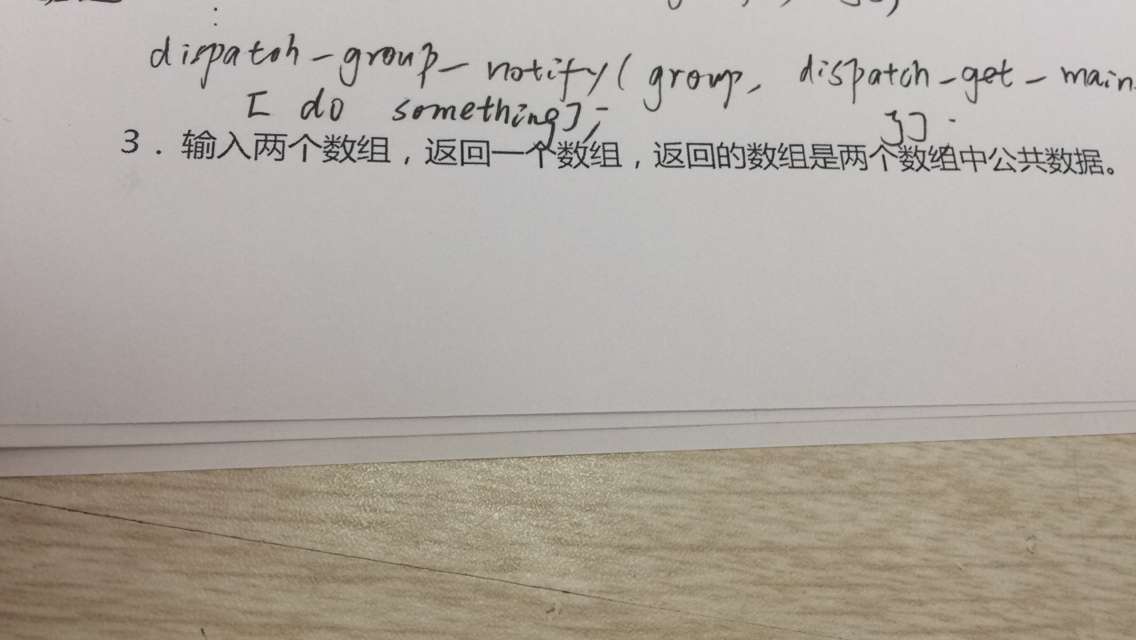 dispatch-group-notify(group, dispatch-get-main
[ do something];
}].
3．输入两个数组，返回一个数组，返回的数组是两个数组中公共数据。